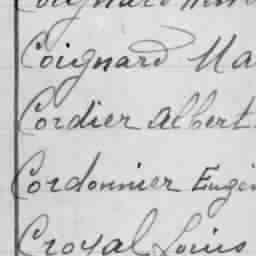 Coignard
Coignard Ma
Cordier Albert
Cordonnier Eugè
Croyal Louis